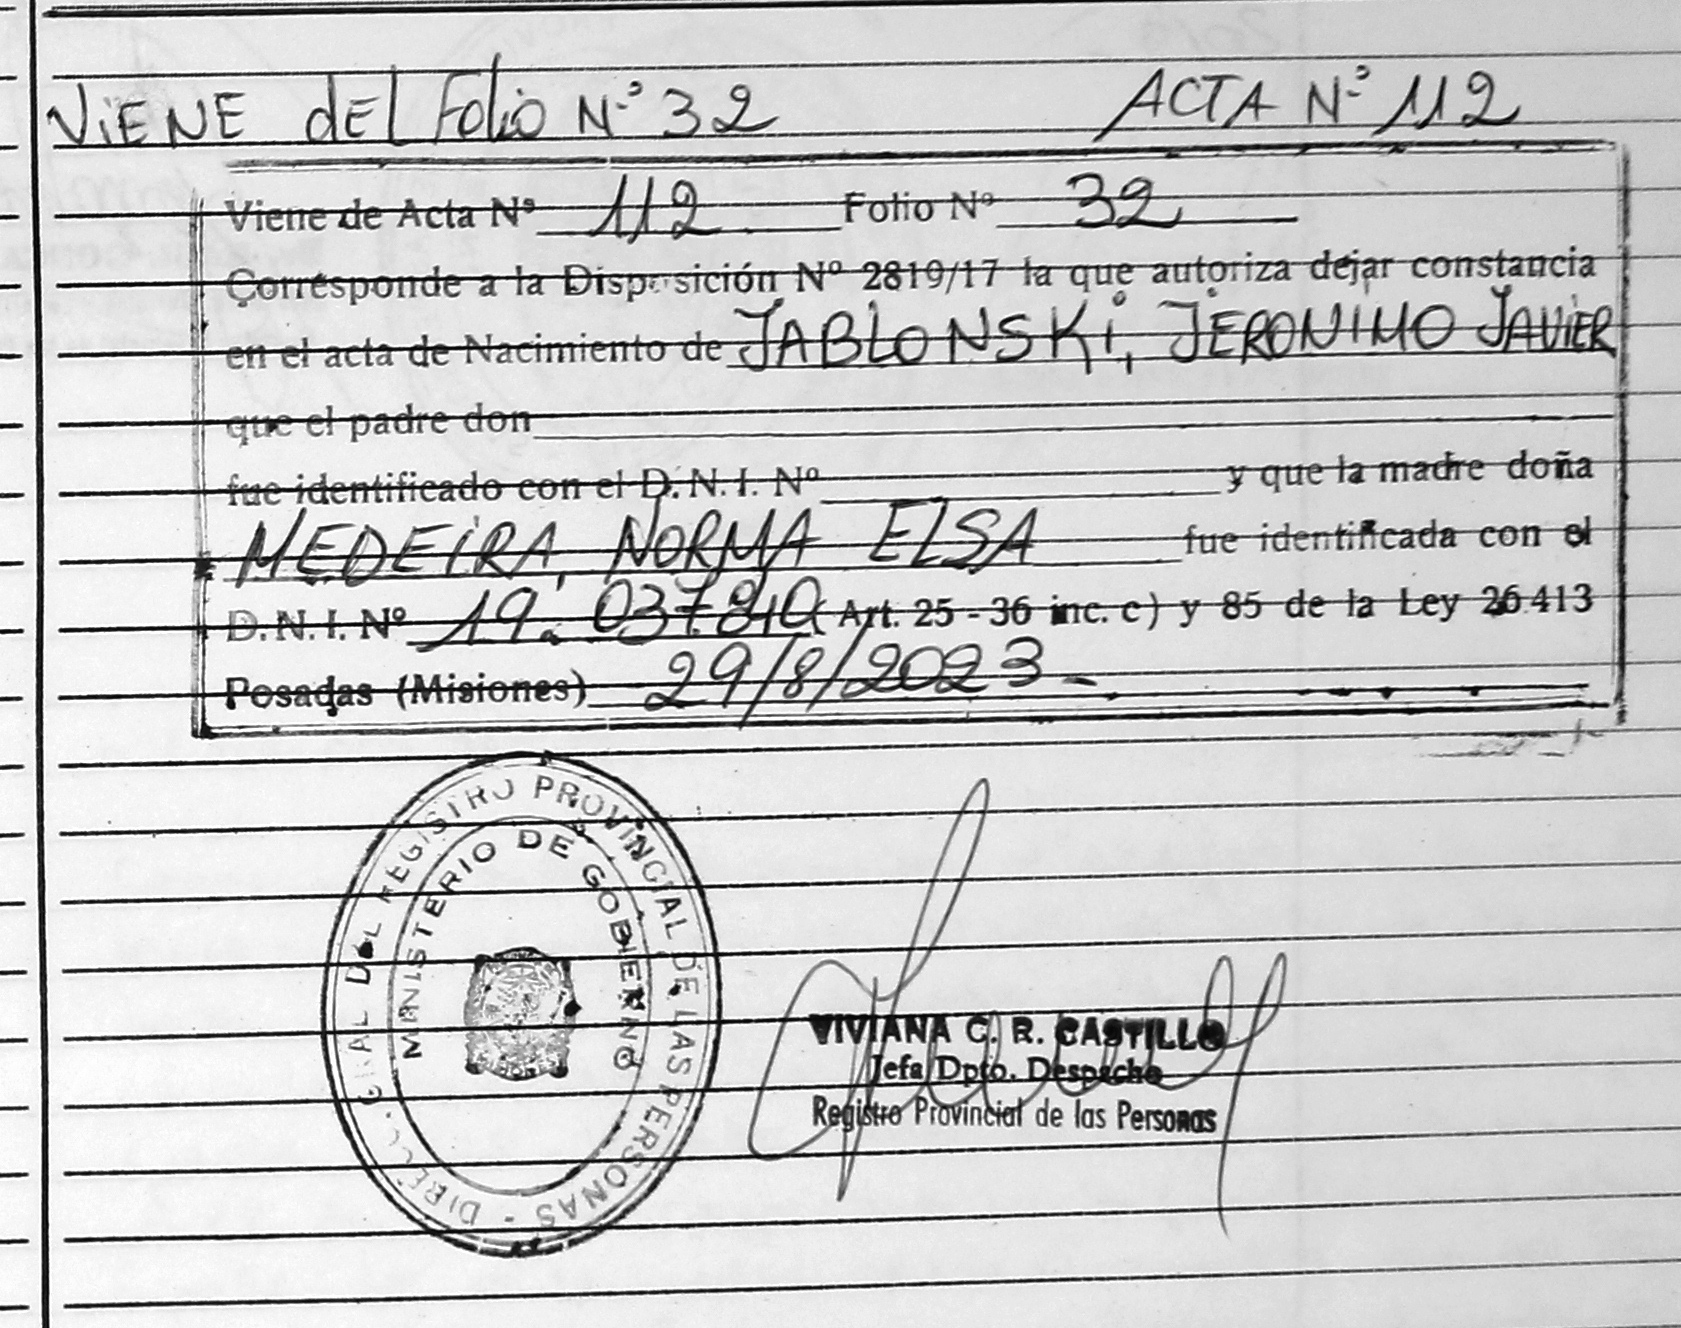 ViENE dEL Folio N° 32 ACTA N° 112
Viene de Acta Nº 112 Folio Nº 32
Corresponde a la Disposición Nº 2819/17 la que autoriza dejar constancia
en el acta de Nacimiento de JABLONSKi, JERONIMO JAVIER
que el padre don
fue identificado con el D.N.I. Nº y que la madre doña
MEDEiRA, NORMA ELSA fue identificada con el
D.N.I. Nº 19.037.840 (Art. 25 - 36 inc. c) y 85 de la Ley 26.413
Posadas (Misiones) 29/8/2023.-
DIRECC. GRAL DEL REGISTRO PROVINCIAL DE LAS PERSONAS -
MINISTERIO DE GOBIERNO
VIVIANA C. R. CASTILLO
Jefa Dpto. Despacho
Registro Provincial de las Personas